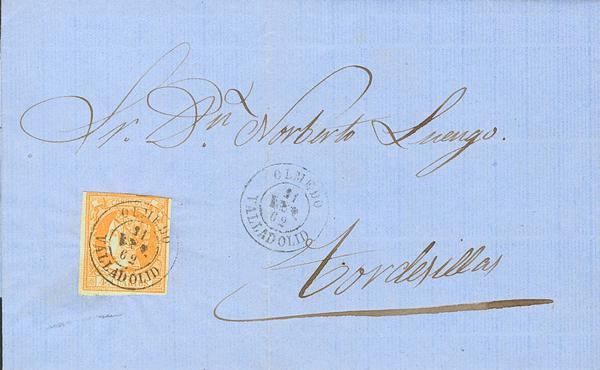 Sr. Dn. Norberto Luengo.
OLMEDO
21
62
VALLADOLID
Tordesillas
OLMEDO
21
62
VALLADOLID